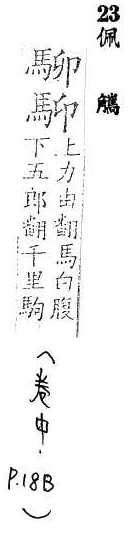 23佩觿
駠䭹上力由翻馬白腹
下五郎翻千里駒
(卷中.
P.18B)